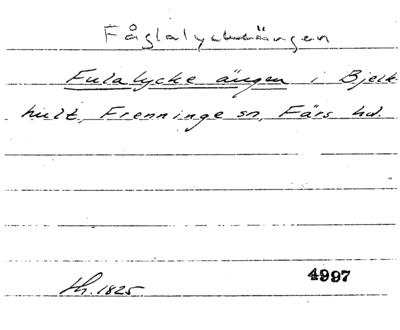 Fåglalyckeängen
Fulalycke ängen i Bjelk-
hult, Frenninge sn, Färs hd.
Lh. 1825
4997